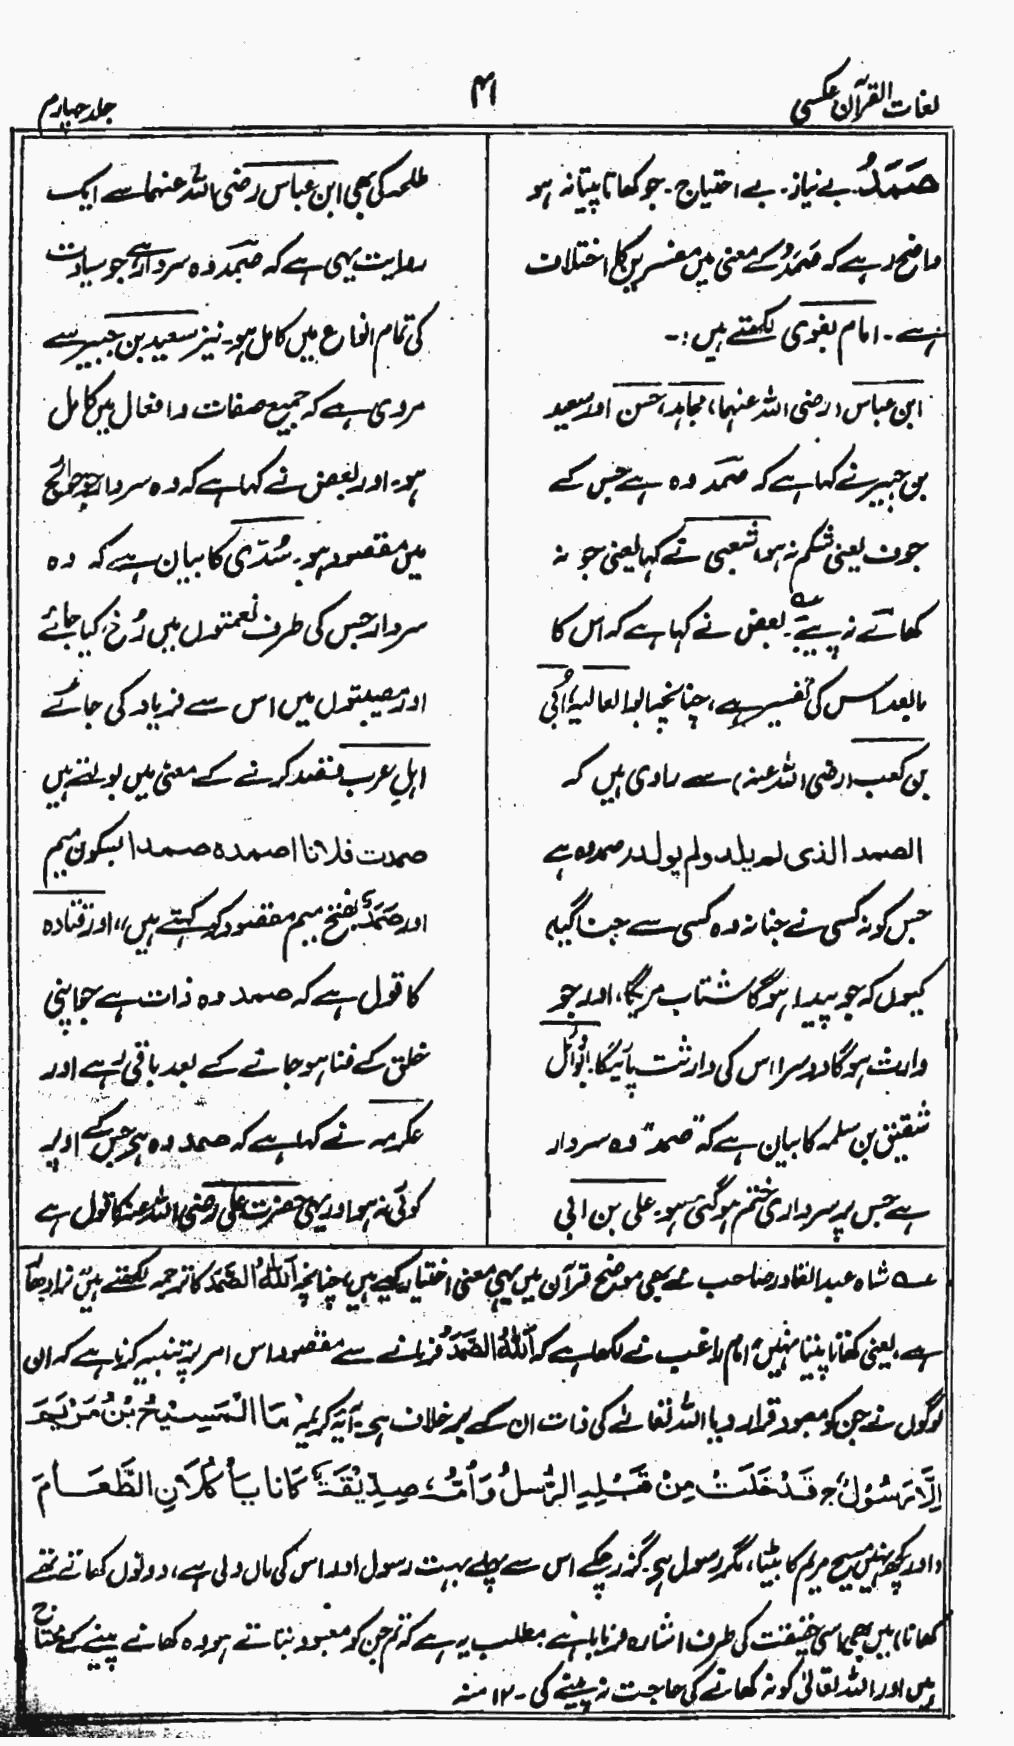 لغات القرآن عکسی
۴۱
جلد چہارم
صَمَدُ۔ بے نیاز۔ بے احتیاج۔ جو کھاتا پیتا نہ ہو
واضح رہے کہ صَمَدُ کے معنی میں مفسرین کا اختلاف
ہے۔ امام بغوی لکھتے ہیں :۔
ابن عباس (رضی اللہ عنہما)، مجاہد، حسن اور سعید
بن جبیر نے کہا ہے کہ صَمَد وہ ہے جس کے
جوف یعنی شکم نہ ہو، شعبی نے کہا یعنی جو نہ
کھائے نہ پیے؎۔ بعض نے کہا ہے کہ اس کا
مابعد اس کی تفسیر ہے، چنانچہ ابوالعالیہ، اُبی
بن کعب (رضی اللہ عنہ) سے راوی ہیں کہ
الصمد الذی لم یلد ولم یولد صمد وہ ہے
جس کو نہ کسی نے جنا نہ وہ کسی سے جنا گیا،
کیوں کہ جو پیدا ہوگا شتاب مریگا، اور جو
وارث ہوگا دوسرا اس کی وارثت پائیگا۔ ابو وائل
شقیق بن سلمہ کا بیان ہے کہ "صمد" وہ سردار
ہے جس پر سرداری ختم ہو گئی ہو۔ علی بن ابی
طلحہ کی بھی ابن عباس رضی اللہ عنہما سے ایک
روایت یہی ہے کہ صَمَد وہ سردار ہے جو سیادت
کی تمام انواع میں کامل ہو۔ نیز سعید بن جبیر سے
مروی ہے کہ جمیع صفات و افعال میں کامل
ہو۔ اور بعض نے کہا ہے کہ وہ سردار جو حوائج
میں مقصود ہو۔ سُدّی کا بیان ہے کہ وہ
سردار جس کی طرف نعمتوں میں رُخ کیا جائے
اور مصیبتوں میں اس سے فریاد کی جائے
اہلِ عرب قصد کرنے کے معنی میں بولتے ہیں
صمدت فلانا اصمدہ صمدا بسکون میم
اور صَمَدٌ بفتح میم مقصود کو کہتے ہیں،، اور قتادہ
کا قول ہے کہ صمد وہ ذات ہے جو اپنی
خلق کے فنا ہو جانے کے بعد باقی رہے اور
عکرمہ نے کہا ہے کہ صمد وہ ہے جس کے اوپر
کوئی نہ ہو اور یہی حضرت علی رضی اللہ عنہ کا قول ہے
؎ شاہ عبدالقادر صاحب نے بھی موضح قرآن میں یہی معنی اختیار کیے ہیں، چنانچہ اَللّٰہُ الصَّمَدُ کا ترجمہ لکھتے ہیں نرادھار
ہے، یعنی کھاتا پیتا نہیں، امام راغب نے لکھا ہے کہ اَللّٰہُ الصَّمَدُ فرمانے سے مقصود اس امر پر تنبیہ کرنا ہے کہ ان
لوگوں نے جن کو معبود قرار دیا اللہ تعالےٰ کی ذات ان کے برخلاف ہے۔ آیۂ کریمہ مَا الْمَسِیْحُ بْنُ مَرْیَمَ
اِلَّا رَسُوْلٌ ج قَدْ خَلَتْ مِنْ قَبْلِہِ الرُّسُلُ وَاُمُّہٗ صِدِّیْقَۃٌ کَانَا یَاْکُلَانِ الطَّعَامَ
(اور کچھ نہیں مسیح مریم کا بیٹا، مگر رسول ہے۔ گزر چکے اس سے پہلے بہت رسول اور اس کی ماں ولی ہے، دونوں کھاتے تھے
کھانا) میں بھی اسی حقیقت کی طرف اشارہ فرمایا ہے مطلب یہ ہے کہ تم جن کو معبود بتاتے ہو وہ کھانے پینے کے محتاج
ہیں اور اللہ تعالیٰ کو نہ کھانے کی حاجت نہ پینے کی۔ ۱۲ منہ